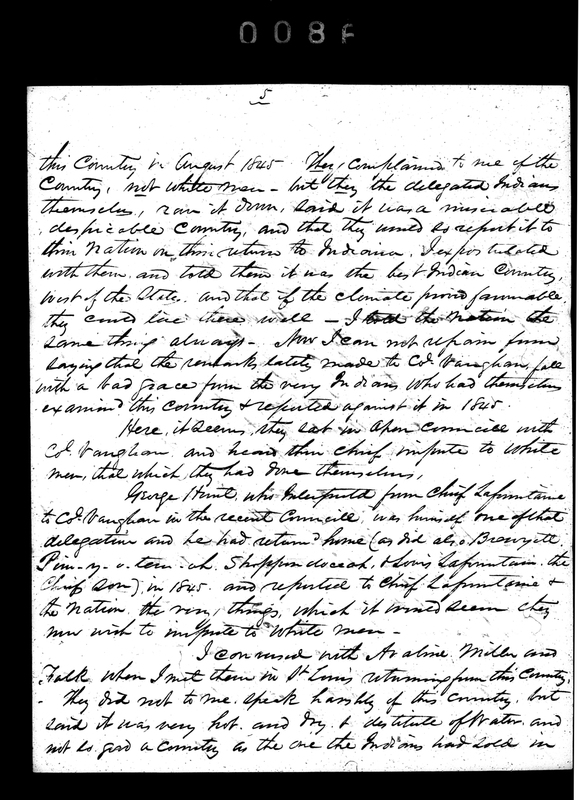 008F
5
this Country in August 1845 They complained to me of the
Country, not white men - but they the delegated Indians
themselves, ran it down, said it was a miserable
despicable Country, and that they would so report it to
their Nation on their return to Indiana. I expostulated
with them and told them it was the best Indian Country,
west of the State. and that if the climate proved favourable,
they could live there well - I told the Nation the
same thing always - Now I can not refrain from
saying that the remarks lately made to Col. Vaughan, fall
with a bad grace from the very Indians who had themselves
examined this country & reported against it in 1845
Here, it seems, they sat in open Council with
Col. Vaughan and heard their Chief impute to White
men, that which they had done themselves,
George Hunt, who Interpreted from Chief Lafontaine
to Col. Vaughan in the recent Council, was himself one of that
delegation and he had returned home (as did also Brewyett
Pim-y-o-tem-ah, Shoppindoceah, & Louis Lafontain the
Chiefs son), in 1845 and reported to Chief Lafontaine &
the Nation the very things, which it would seem they
now wish to impute to White men -
I conversed with Avaline Miller and
Falk when I met them in St Louis returning from this Country,
- They did not to me speak harshly of this Country, but
said it was very hot and Dry & destitute of Water and
not so good a Country as the one the Indians had sold in